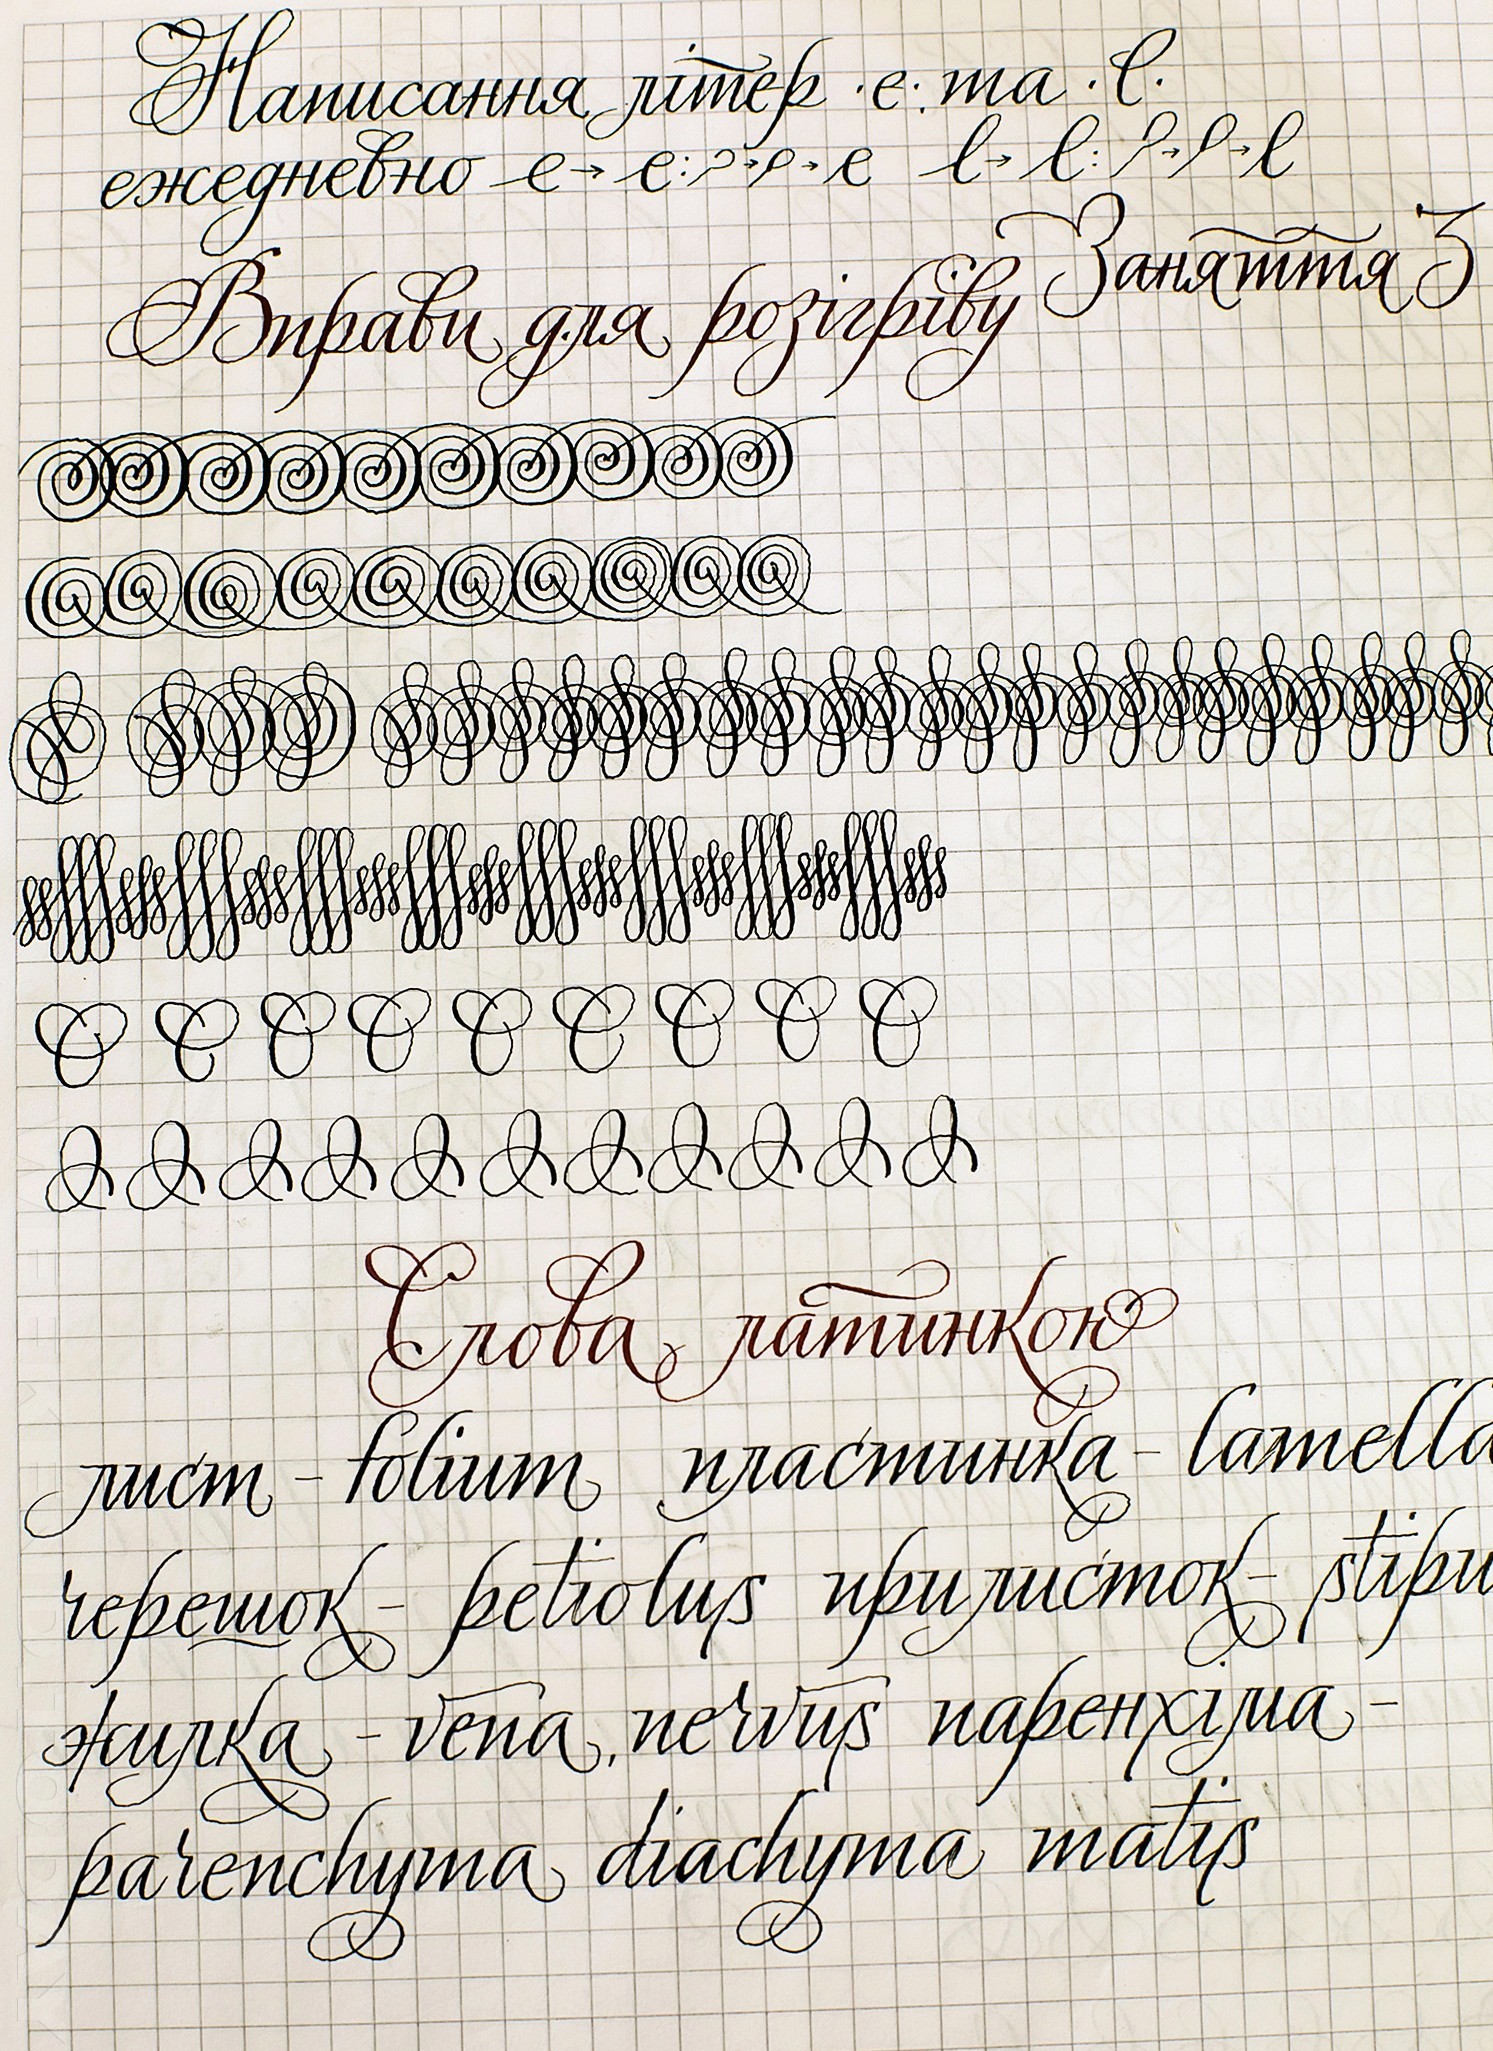 Написання літер ·е· та ·l·
ежедневно е → е : → → е l → l : → → l
Заняття 3
Вправи для розігріву
Слова латинкою
лист - folium пластинка - lamella
черешок - petiolus прилисток - stipu
жилка - vena, nervus паренхіма -
parenchyma diachyma matis